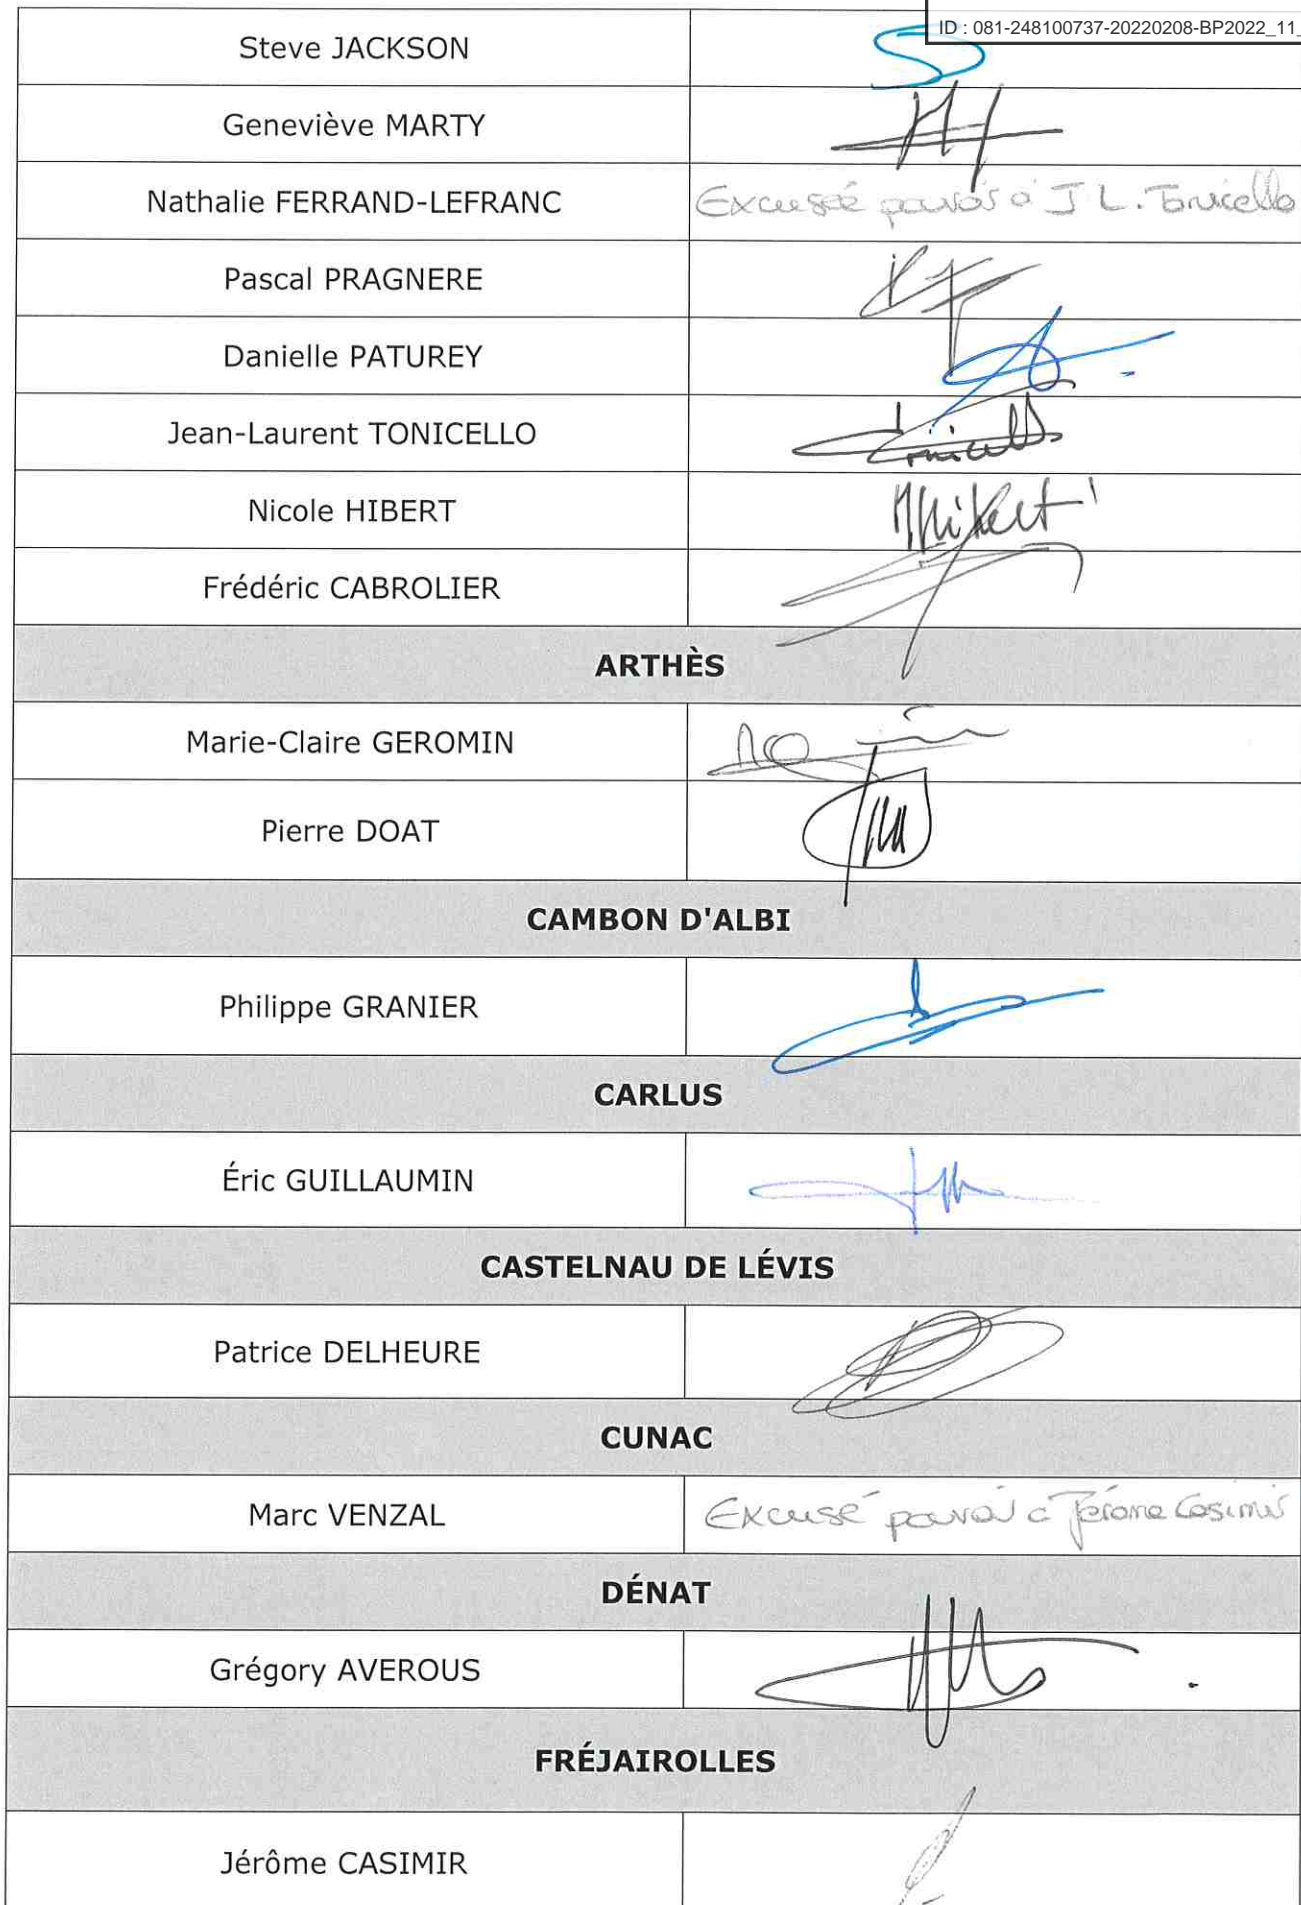 ID : 081-248100737-20220208-BP2022_11_
Steve JACKSON
Geneviève MARTY
Nathalie FERRAND-LEFRANC Excusée pouvoir à J L. Tonicello
Pascal PRAGNERE
Danielle PATUREY
Jean-Laurent TONICELLO Tonicello
Nicole HIBERT NHibert
Frédéric CABROLIER
ARTHÈS
Marie-Claire GEROMIN
Pierre DOAT
CAMBON D'ALBI
Philippe GRANIER
CARLUS
Éric GUILLAUMIN
CASTELNAU DE LÉVIS
Patrice DELHEURE
CUNAC
Marc VENZAL Excusé pouvoir à Jérôme Casimir
DÉNAT
Grégory AVEROUS
FRÉJAIROLLES
Jérôme CASIMIR